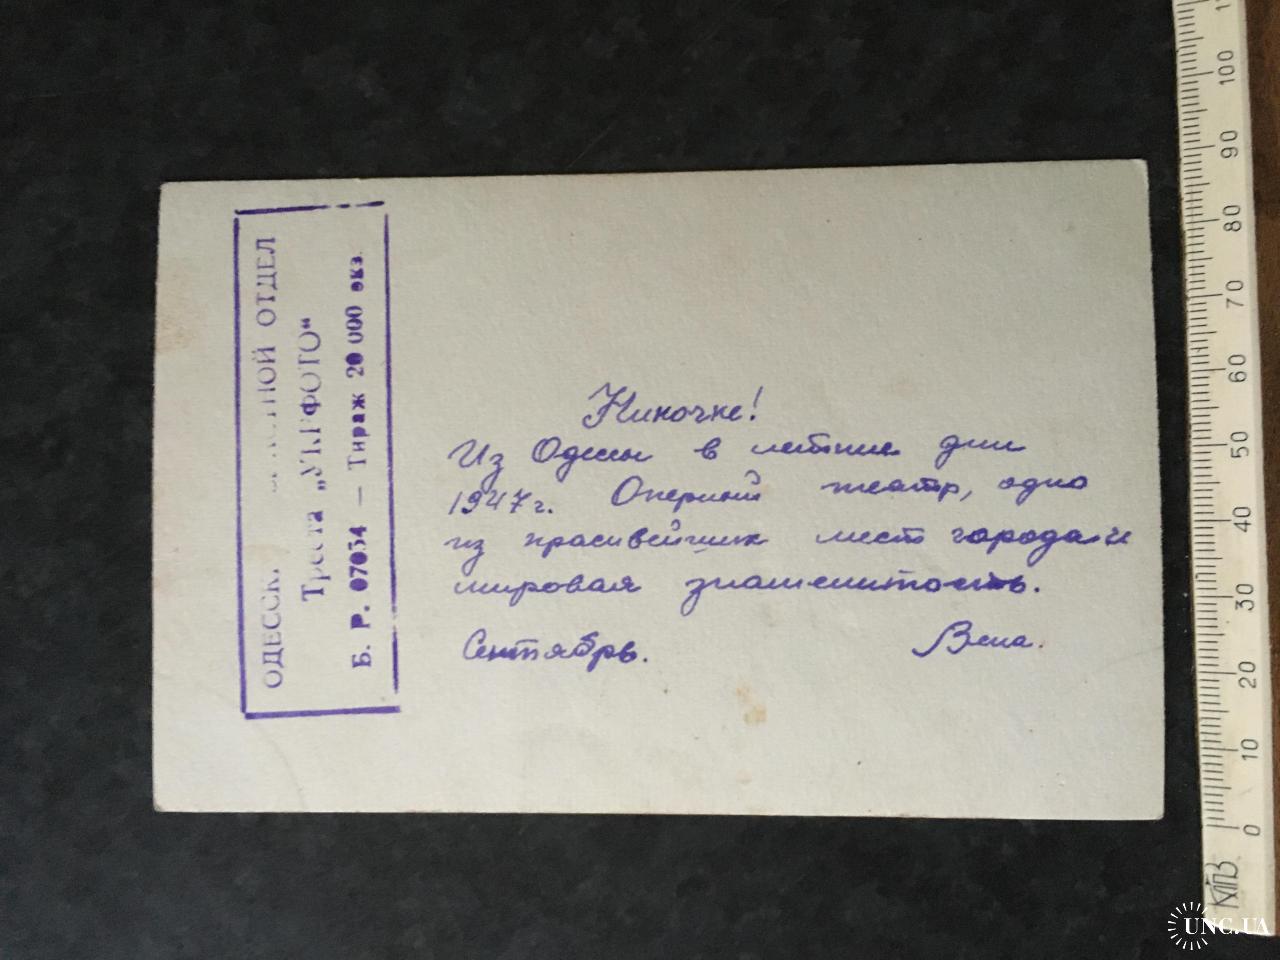 ОДЕССК ОТДЕЛ
Треста „УКРФОТО“
Б. Р. 07054 — Тираж 20 000 экз.
Ниночке!
Из Одессы в летние дни
1947г. Оперный театр, одно
из красивейших мест города и
мировая знаменитость.
Сентябрь.
0 10 20 30 40 50 60 70 80 90 100
UNC.UA